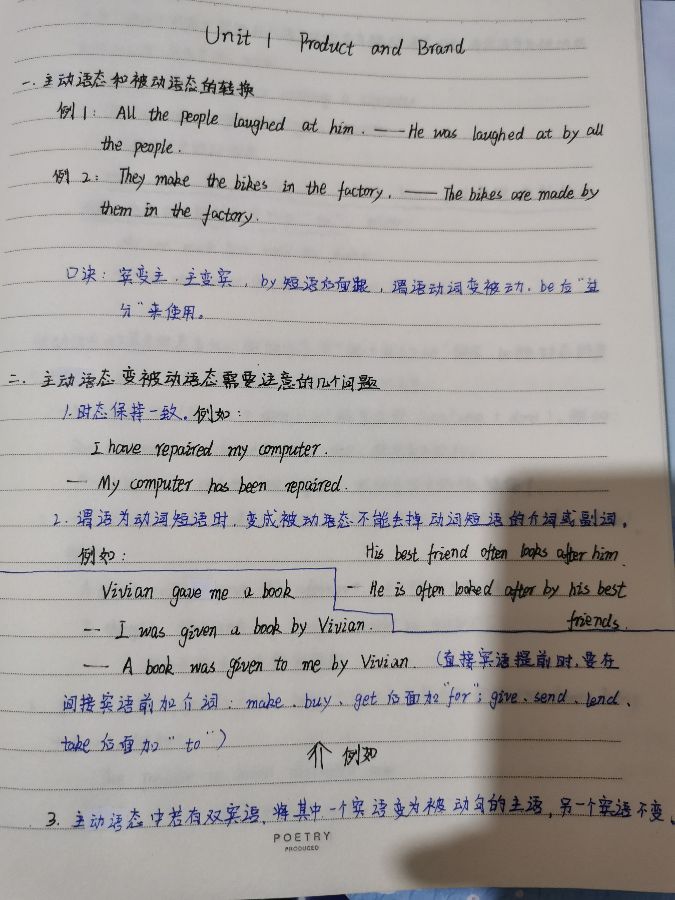 Unit 1 Product and Brand
一. 主动语态和被动语态的转换
例1: All the people laughed at him. —— He was laughed at by all
the people.
例2: They make the bikes in the factory. —— The bikes are made by
them in the factory.
口诀: 宾变主. 主变宾, by短语后面跟, 谓语动词变被动. be后"过
分"来使用。
二. 主动语态变被动语态需要注意的几个问题
1. 时态保持一致。例如:
I have repaired my computer.
— My computer has been repaired.
2. 谓语为动词短语时, 变成被动语态不能去掉动词短语的介词或副词。
例如: His best friend often looks after him.
Vivian gave me a book — He is often looked after by his best
-- I was given a book by Vivian. friends.
— A book was given to me by Vivian. (直接宾语提前时, 要在
间接宾语前加介词: make. buy、get后面加"for"; give、send、lend、
take后面加"to")
例如
3. 主动语态中若有双宾语, 将其中一个宾语变为被动句的主语, 另一个宾语不变。
POETRY
PRODUCED